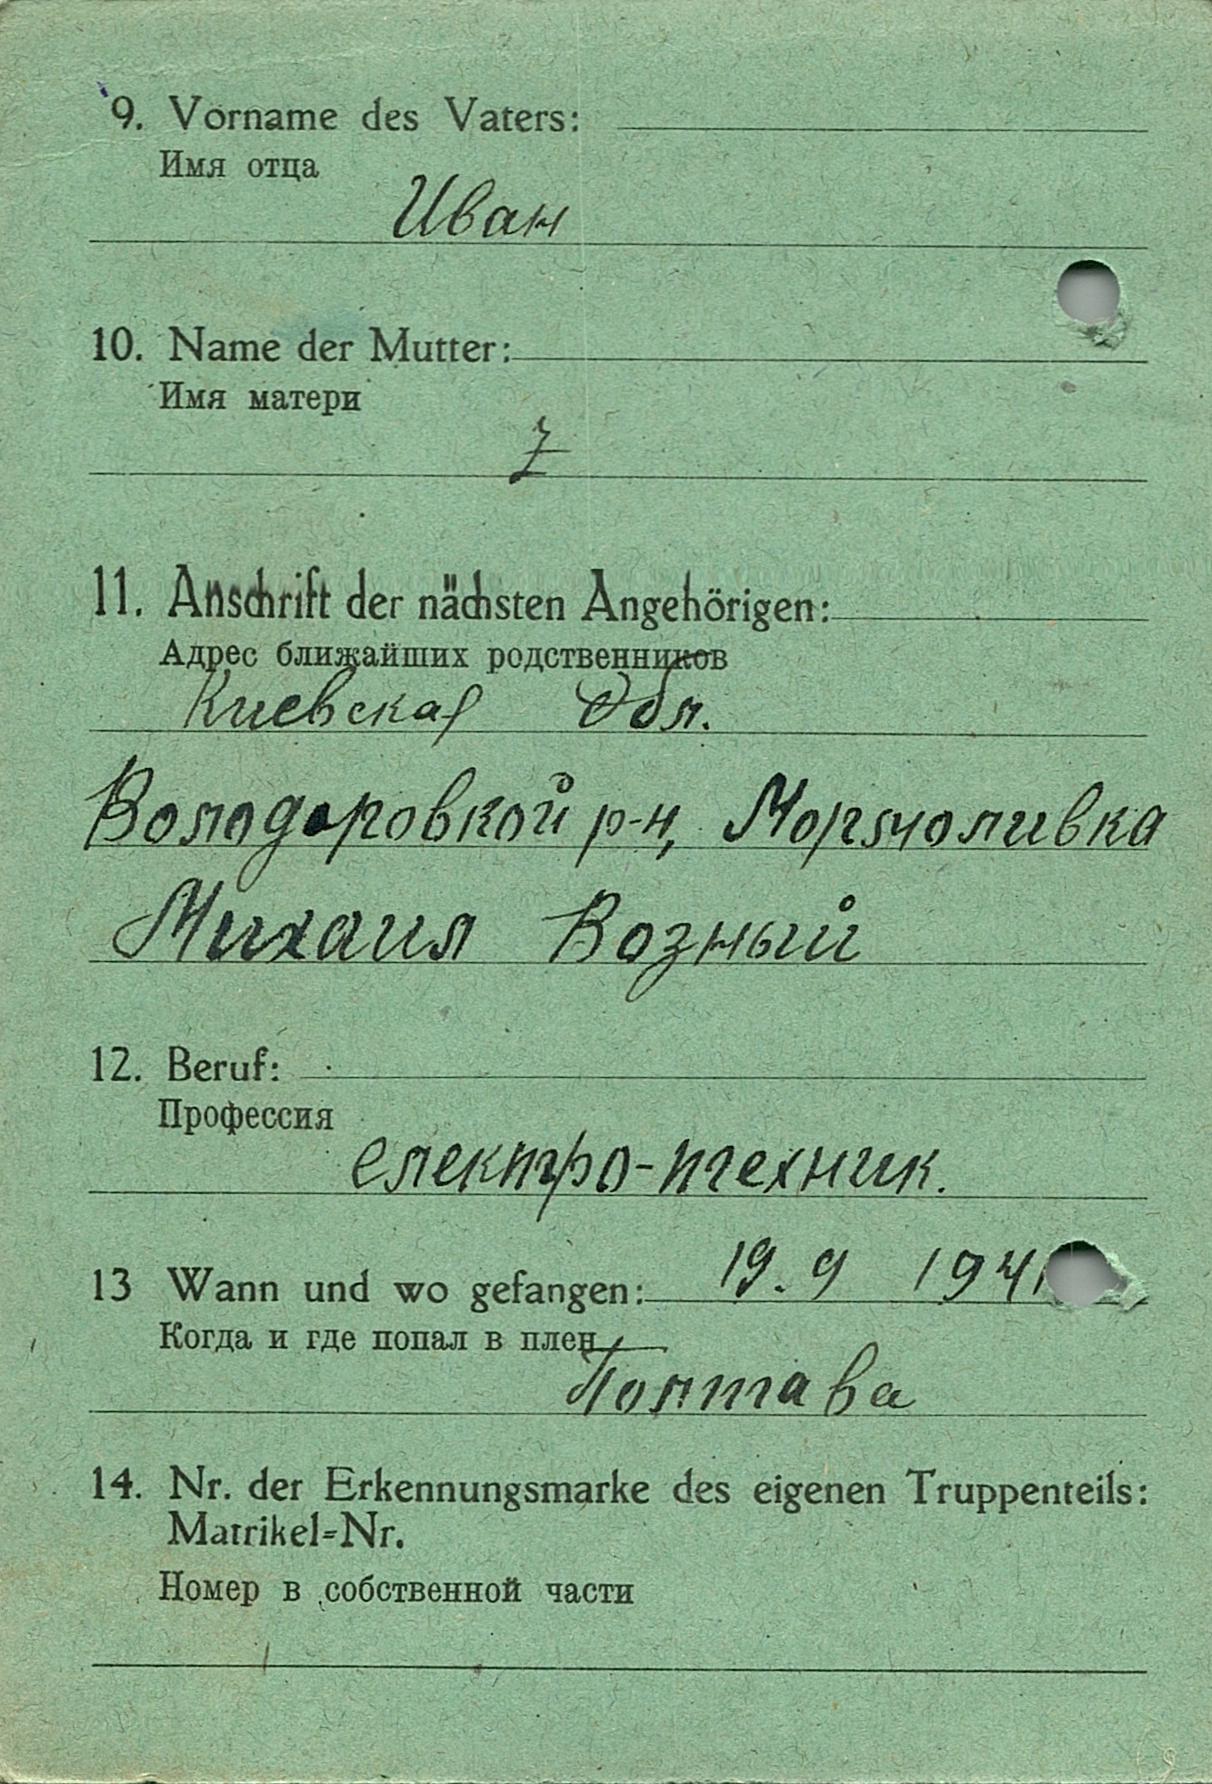 9. Vorname des Vaters:
Имя отца
Иван
10. Name der Mutter:
Имя матери
11. Anschrift der nächsten Angehörigen:
Адрес ближайших родственников
Киевская Обл.
Володоровкой р-н,
Михаил Возный
12. Beruf:
Профессия
електро-техник.
13 Wann und wo gefangen: 19. 9 1941
Когда и где попал в плен
Полтава
14. Nr. der Erkennungsmarke des eigenen Truppenteils:
Matrikel=Nr.
Номер в собственной части